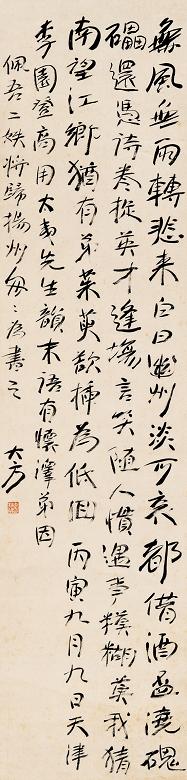 無風無雨轉悲來白日幽州淡可哀都借酒盃澆磈
礧還憑詩卷擬英才逢場言笑隨人慣過眼模糊莫我猜
南望江鄉猶有弟茱萸欲插為低回丙寅九月九日天津
李園登高用大夷先生韻末語有懷澤弟因
佩吾二姪將歸揚州匆匆為書之
大方